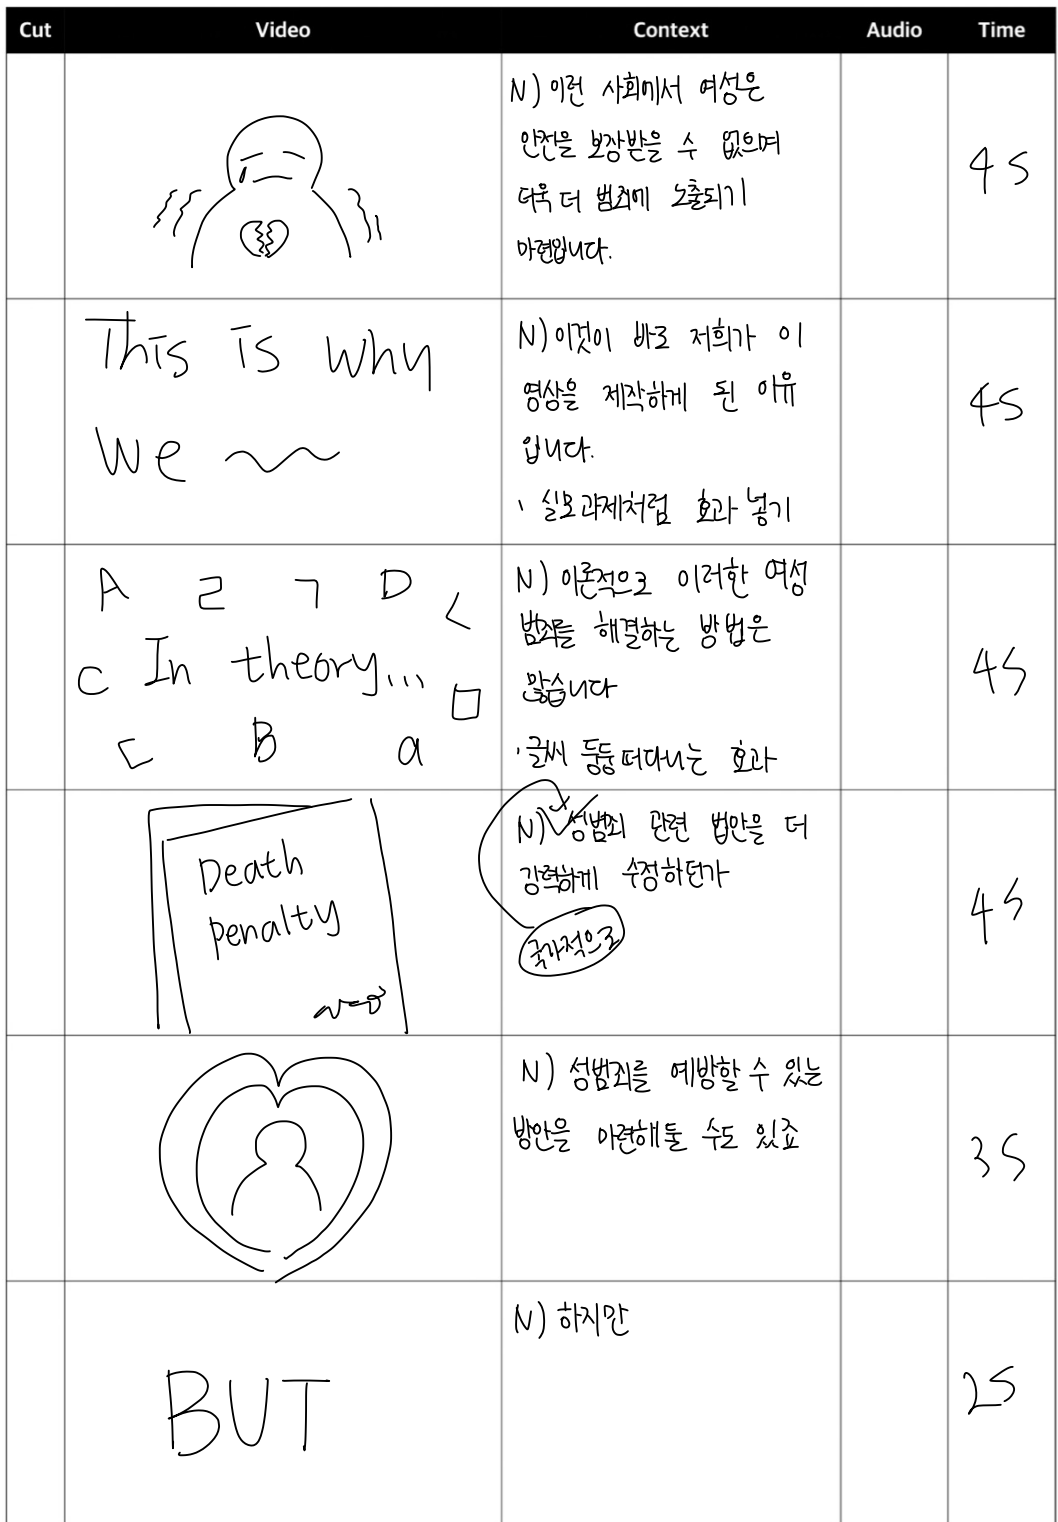 Cut Video Context Audio Time
N) 이런 사회에서 여성은
안전을 보장받을 수 없으며
더욱 더 범죄에 노출되기
마련입니다.
4s
This is why
we
N) 이것이 바로 저희가 이
영상을 제작하게 된 이유
입니다.
· 실모과제처럼 효과 넣기
4s
A ㄹ ㄱ D ㄑ
C In theory... ㅁ
ㄷ B a
N) 이론적으로 이러한 여성
범죄를 해결하는 방법은
많습니다
· 글씨 둥둥 떠다니는 효과
4s
Death
penalty
N) 성범죄 관련 법안을 더
강력하게 수정하던가
국가적으로
4s
N) 성범죄를 예방할 수 있는
방안을 마련해둘 수도 있죠
3s
BUT
N) 하지만
2s